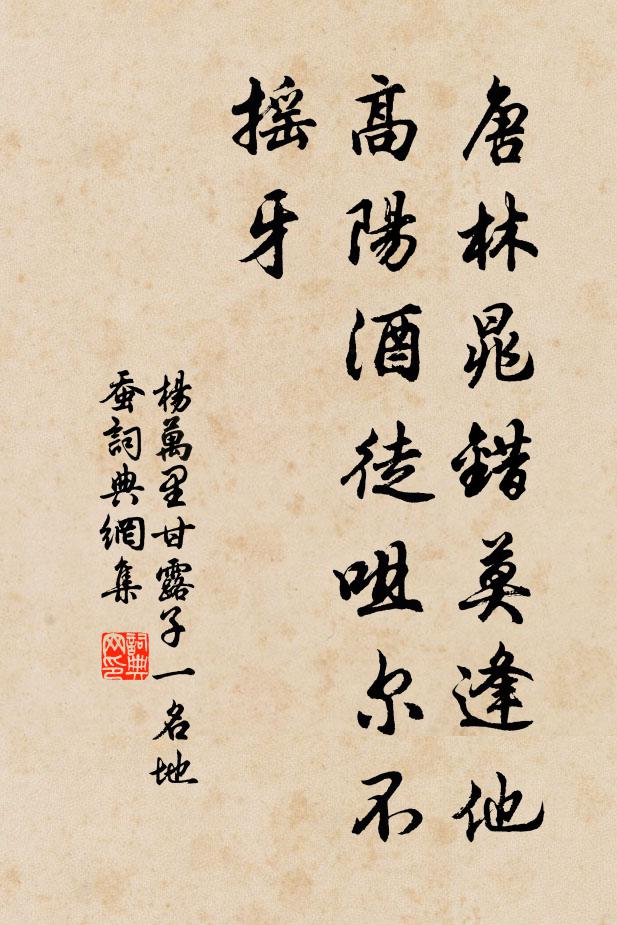 唐林晁錯莫逢他
高陽酒徒咀尔不
摇牙
楊萬里甘露子一名地
蚕詞典網集
詞典
网印